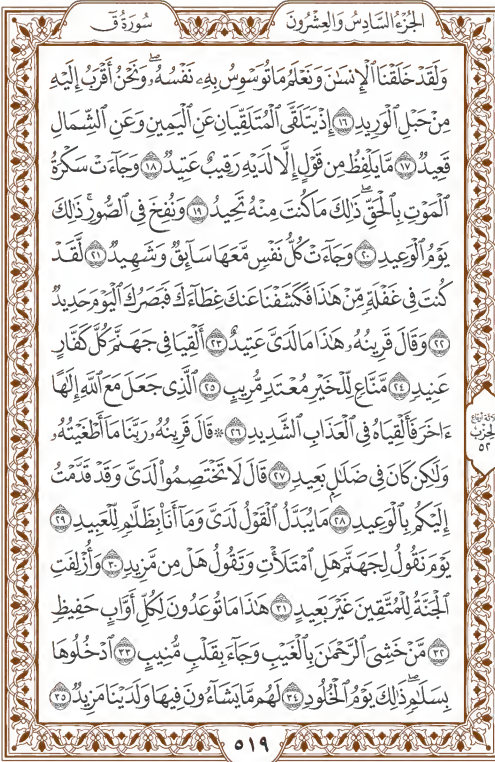 سُورَةُ قٓ
الجُزْءُ السَّادِسُ وَالعِشْرُونَ
وَلَقَدْ خَلَقْنَا ٱلْإِنسَٰنَ وَنَعْلَمُ مَا تُوَسْوِسُ بِهِۦ نَفْسُهُۥۖ وَنَحْنُ أَقْرَبُ إِلَيْهِ
مِنْ حَبْلِ ٱلْوَرِيدِ ١٦ إِذْ يَتَلَقَّى ٱلْمُتَلَقِّيَانِ عَنِ ٱلْيَمِينِ وَعَنِ ٱلشِّمَالِ
قَعِيدٌ ١٧ مَّا يَلْفِظُ مِن قَوْلٍ إِلَّا لَدَيْهِ رَقِيبٌ عَتِيدٌ ١٨ وَجَآءَتْ سَكْرَةُ
ٱلْمَوْتِ بِٱلْحَقِّۖ ذَٰلِكَ مَا كُنتَ مِنْهُ تَحِيدُ ١٩ وَنُفِخَ فِى ٱلصُّورِۚ ذَٰلِكَ
يَوْمُ ٱلْوَعِيدِ ٢٠ وَجَآءَتْ كُلُّ نَفْسٍ مَّعَهَا سَآئِقٌ وَشَهِيدٌ ٢١ لَّقَدْ
كُنتَ فِى غَفْلَةٍ مِّنْ هَٰذَا فَكَشَفْنَا عَنكَ غِطَآءَكَ فَبَصَرُكَ ٱلْيَوْمَ حَدِيدٌ
٢٢ وَقَالَ قَرِينُهُۥ هَٰذَا مَا لَدَىَّ عَتِيدٌ ٢٣ أَلْقِيَا فِى جَهَنَّمَ كُلَّ كَفَّارٍ
عَنِيدٍ ٢٤ مَّنَّاعٍ لِّلْخَيْرِ مُعْتَدٍ مُّرِيبٍ ٢٥ ٱلَّذِى جَعَلَ مَعَ ٱللَّهِ إِلَٰهًا
ءَاخَرَ فَأَلْقِيَاهُ فِى ٱلْعَذَابِ ٱلشَّدِيدِ ٢٦ ۞ قَالَ قَرِينُهُۥ رَبَّنَا مَآ أَطْغَيْتُهُۥ
وَلَٰكِن كَانَ فِى ضَلَٰلٍۭ بَعِيدٍ ٢٧ قَالَ لَا تَخْتَصِمُوا۟ لَدَىَّ وَقَدْ قَدَّمْتُ
إِلَيْكُم بِٱلْوَعِيدِ ٢٨ مَا يُبَدَّلُ ٱلْقَوْلُ لَدَىَّ وَمَآ أَنَا۠ بِظَلَّٰمٍ لِّلْعَبِيدِ ٢٩
يَوْمَ نَقُولُ لِجَهَنَّمَ هَلِ ٱمْتَلَأْتِ وَتَقُولُ هَلْ مِن مَّزِيدٍ ٣٠ وَأُزْلِفَتِ
ٱلْجَنَّةُ لِلْمُتَّقِينَ غَيْرَ بَعِيدٍ ٣١ هَٰذَا مَا تُوعَدُونَ لِكُلِّ أَوَّابٍ حَفِيظٍ
٣٢ مَّنْ خَشِىَ ٱلرَّحْمَٰنَ بِٱلْغَيْبِ وَجَآءَ بِقَلْبٍ مُّنِيبٍ ٣٣ ٱدْخُلُوهَا
بِسَلَٰمٍۖ ذَٰلِكَ يَوْمُ ٱلْخُلُودِ ٣٤ لَهُم مَّا يَشَآءُونَ فِيهَا وَلَدَيْنَا مَزِيدٌ ٣٥
الحِزْب
٥٢
٥١٩